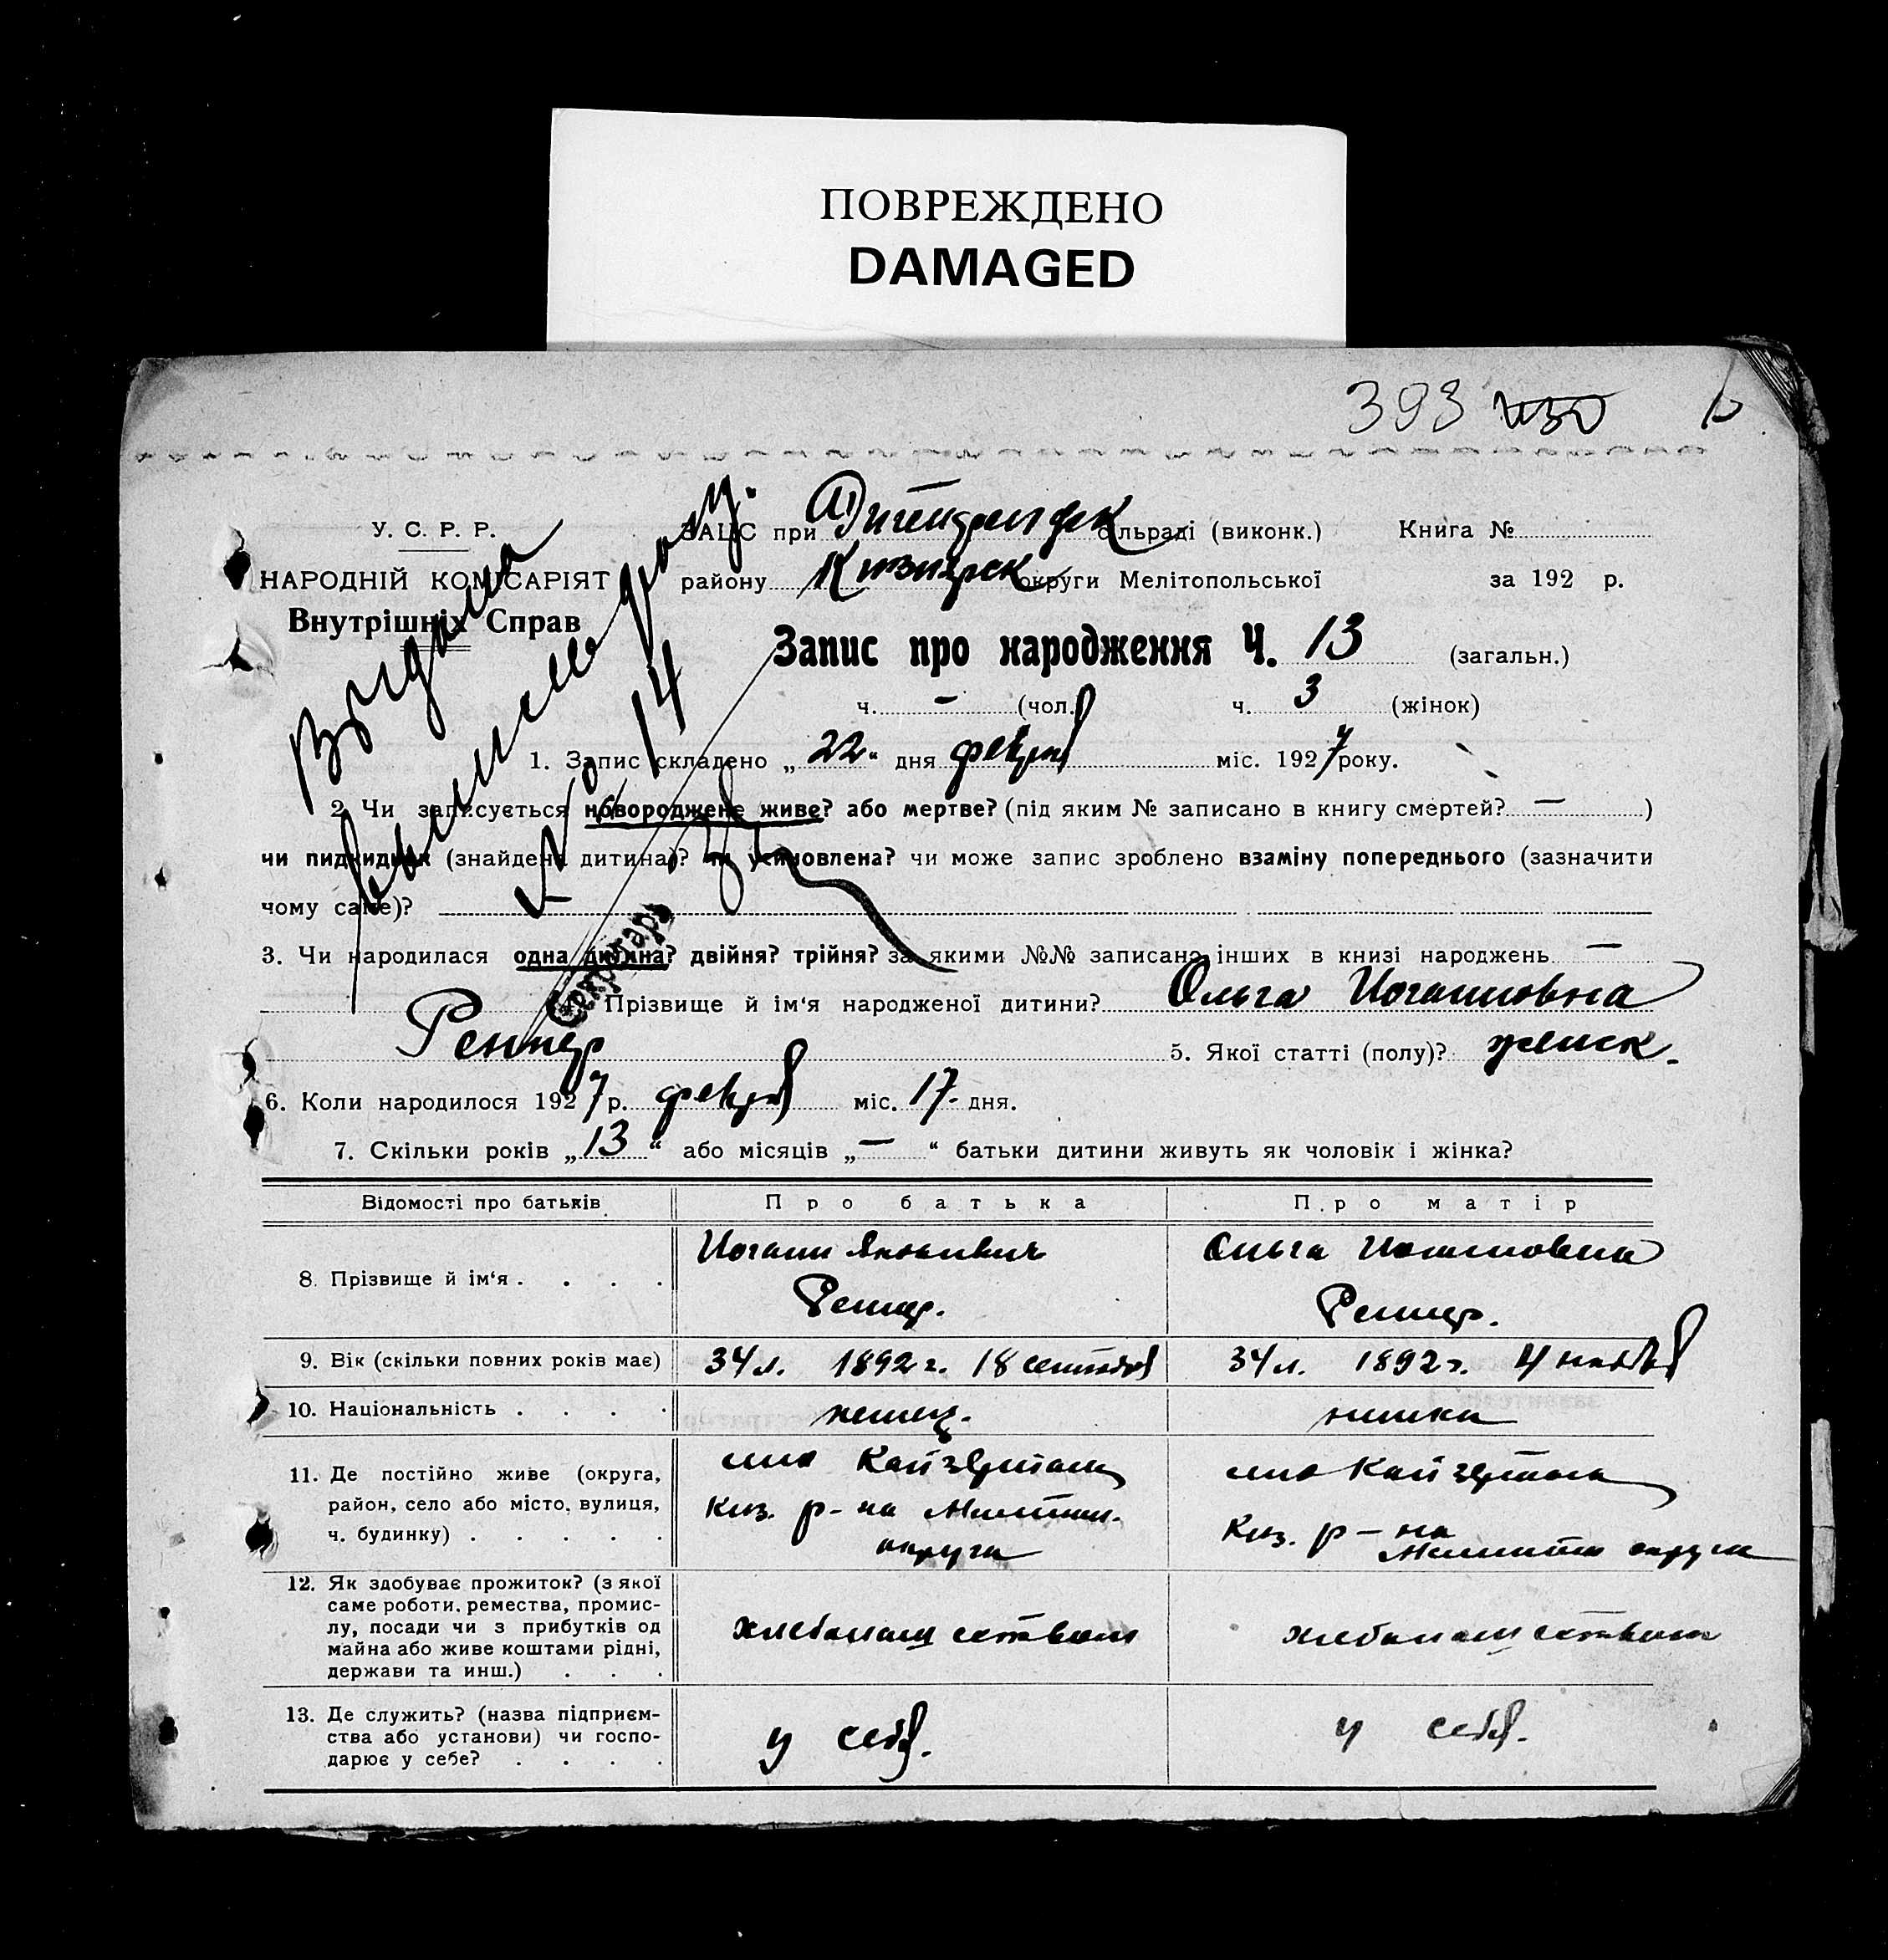 ПОВРЕЖДЕНО
DAMAGED
393
У. С. Р. Р.
ЗАЦС при сільраді (виконк.) Книга №
НАРОДНІЙ КОМІСАРІЯТ району округи Мелітопольської за 192 р.
Внутрішніх Справ
Запис про народження Ч. 13 (загальн.)
ч. — (чол.) ч. 3 (жінок)
Выдана
№ 14
1. Запис складено „22“ дня февра міс. 1927 року.
2. Чи записується новороджене живе? або мертве? (під яким № записано в книгу смертей? — )
чи підкидник (знайдена дитина)? чи усиновлена? чи може запис зроблено взаміну попереднього (зазначити
чому саме)?
Секретарь
3. Чи народилася одна дитина? двійня? трійня? за якими №№ записано інших в книзі народжень —
Прізвище й ім‘я народженої дитини? Ольга Иогановна
Реннер 5. Якої статті (полу)? женск.
6. Коли народилося 1927 р. февра міс. 17 дня.
7. Скільки років „13“ або місяців „—“ батьки дитини живуть як чоловік і жінка?
Відомості про батьків Про батька Про матір
8. Прізвище й ім‘я . . . . Иоганн Яковлевич Ольга Иогановна
Реннер. Реннер.
9. Вік (скільки повних років має) 34 л. 1892 г. 18 сентября 34 л. 1892 г. 4 ноября
10. Національність . . . . немец. немка
11. Де постійно живе (округа, село Кайзерталь село Кайзерталь
район, село або місто, вулиця, Киз. р-на Мелитоп. Киз. р-на
ч. будинку) . . . . . округа Мелитоп округа
12. Як здобуває прожиток? (з якої
саме роботи, ремества, промис-
лу, посади чи з прибутків од хлебопашеством хлебопашеством
майна або живе коштами рідні,
держави та инш.) . . .
13. Де служить? (назва підприєм-
ства або установи) чи госпо- у себя. у себя.
дарює у себе? . . . .